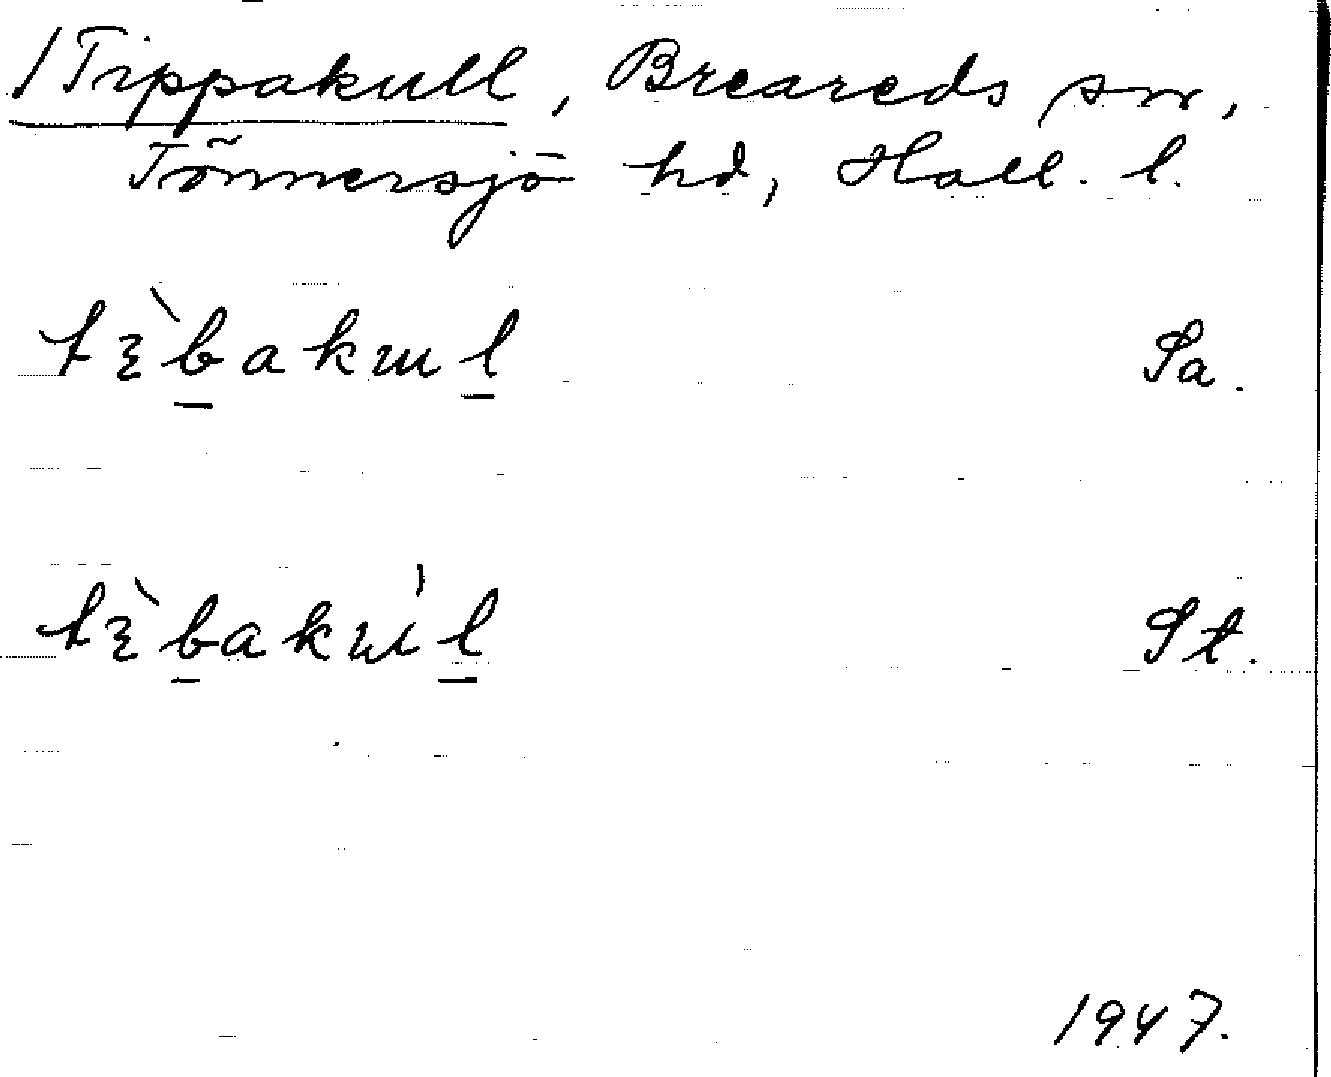 /Tippakull, Breareds sn,
Tönnersjö hd, Hall. l.
tɛ̀bakɯl Sa.
tɛ̀bakɯ́l St.
1947.